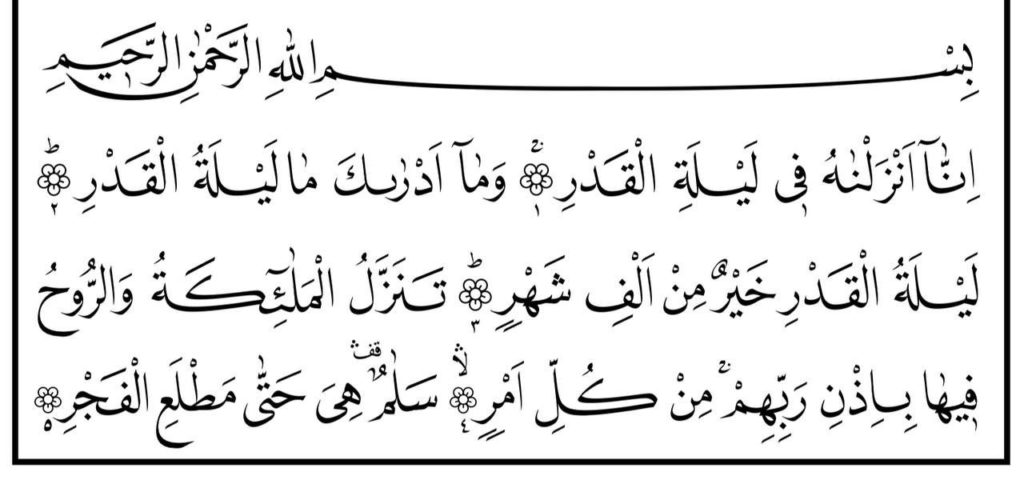 بِسْمِ اللّٰهِ الرَّحْمٰنِ الرَّحِيْمِ
اِنَّآ اَنْزَلْنٰهُ فِيْ لَيْلَةِ الْقَدْرِ ۚ ۝١ وَمَآ اَدْرٰىكَ مَا لَيْلَةُ الْقَدْرِ ؕ ۝٢
لَيْلَةُ الْقَدْرِ خَيْرٌ مِنْ اَلْفِ شَهْرٍ ؕ ۝٣ تَنَزَّلُ الْمَلٰٓئِكَةُ وَالرُّوْحُ
فِيْهَا بِاِذْنِ رَبِّهِمْ ۚ مِنْ كُلِّ اَمْرٍ ۙ ۝٤ سَلٰمٌ ۛ قف هِيَ حَتّٰى مَطْلَعِ الْفَجْرِ ۝٥